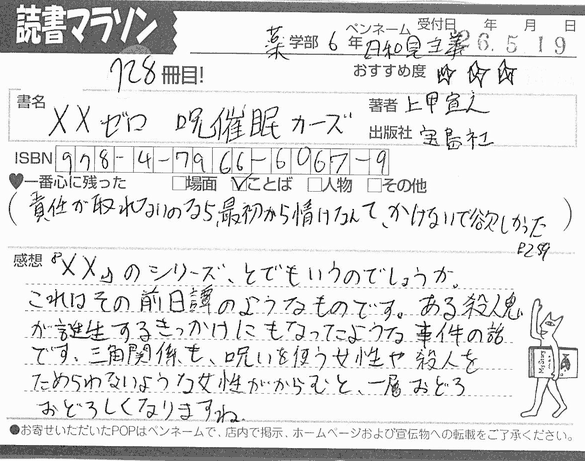 読書マラソン
薬学部 6年 ペンネーム 日和見主義 受付日 年 月 日 26.5.19
728冊目!
おすすめ度 ☆☆☆
書名 XXゼロ 呪催眠カーズ
著者 上甲宣之
出版社 宝島社
ISBN 978-4-7966-6067-9
♥一番心に残った □場面 ☑ことば □人物 □その他
(責任が取れないのなら、最初から情けなんて、かけないで欲しかった)
P259
感想 『XX』のシリーズ、とでもいうのでしょうか。
これはその前日譚のようなものです。ある殺人鬼
が誕生するきっかけにもなったような事件の話
です。三角関係も、呪いを使う女性や殺人を
ためらわないような女性がからむと、一層おどろ
おどろしくなりますね。
●お寄せいただいたPOPはペンネームで、店内で掲示、ホームページおよび宣伝物への転載をご了承ください。